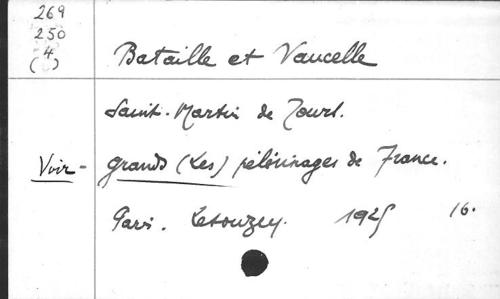 269
250
4
Bataille et Vaucelle
Saint-Martin de Tours.
Voir - Grands (Les) pélerinages de France.
Paris. Letouzey. 1925 16.